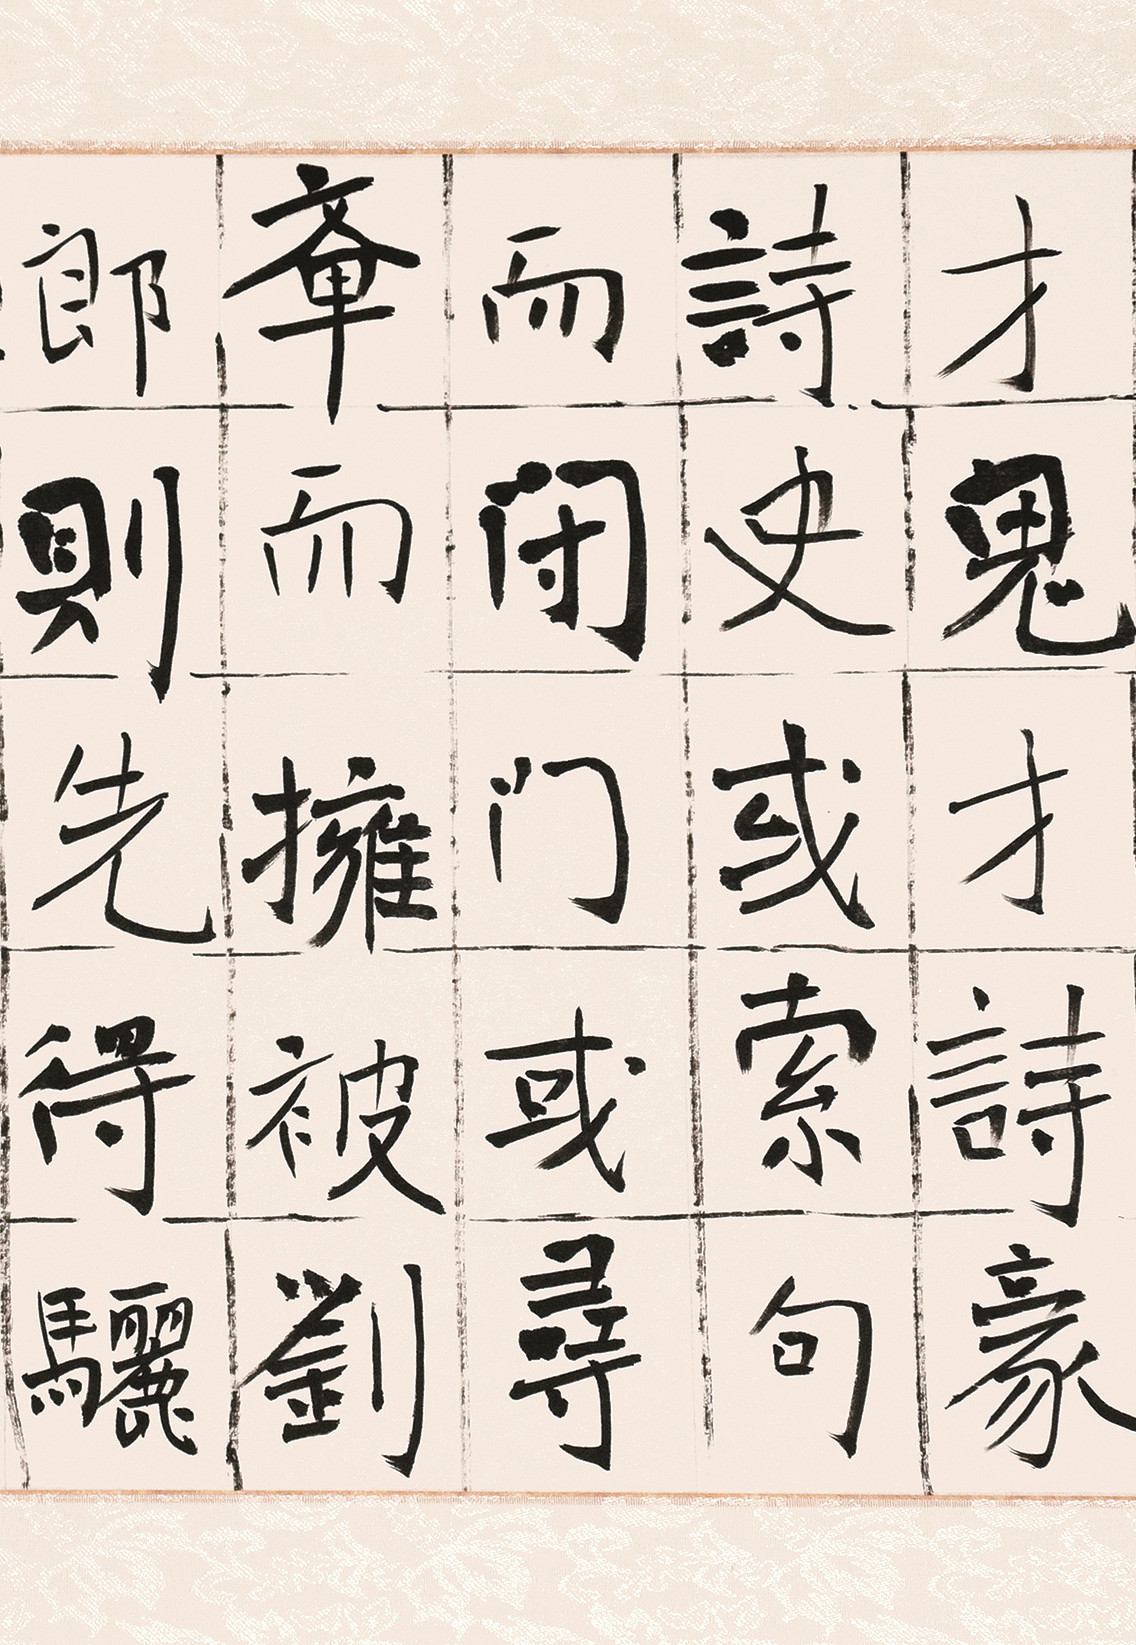 才鬼才詩豪
詩史或索句
而閉門或尋
章而擁被劉
郎則先得驪